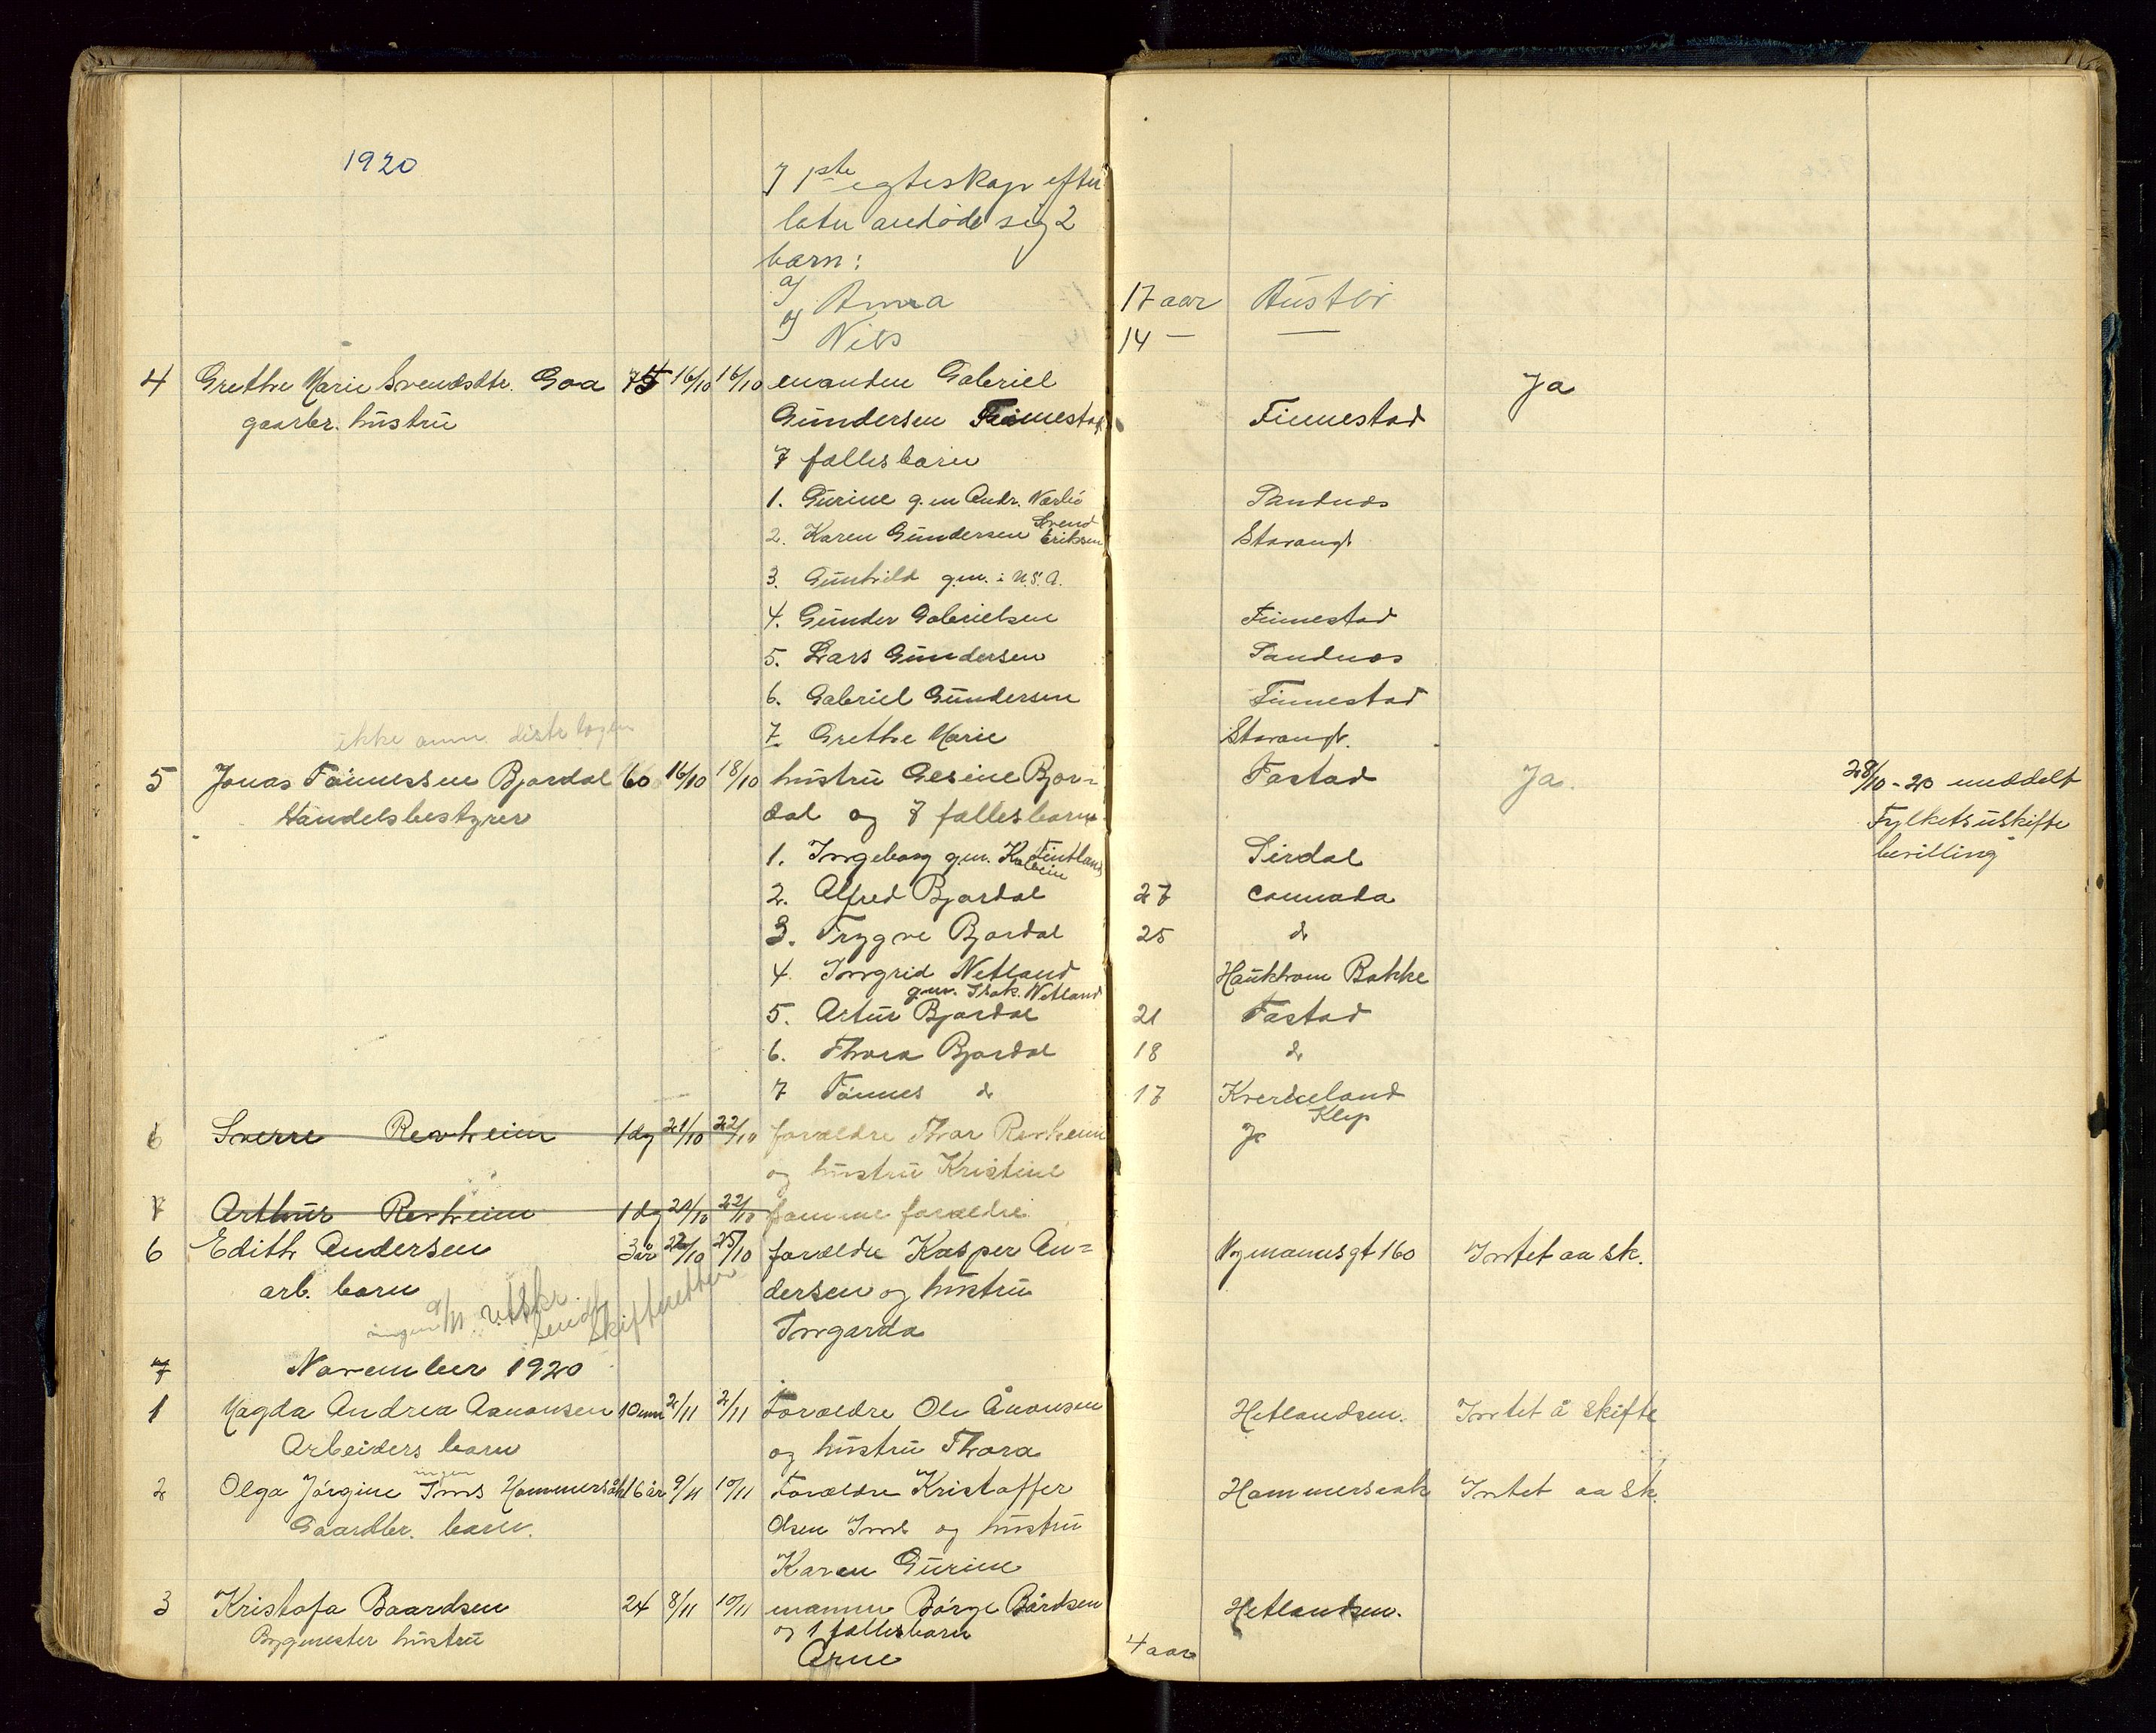 1920
I 1ste egteskap efter
later avdøde sig 2
barn:
a/ Anna 17 aar Austbø
b/ Nils 14 —
4 Grethe Marie Svendsdtr. Goa 75 16/10 16/10 enanden Gabriel Ja
gaardbr. hustru Gundersen Finnestad Finnestad
7 fælles barn
1. Gurine g. m Andr. Nærbø Sandnæs
2. Karen Gundersen Svend Eriksen Stavangr
3. Gunhild g.m. i U.S.A.
4. Gunder Gabrielsen Finnestad
5. Lars Gundersen Sandnæs
6. Gabriel Gundersen Finnestad
7. Grethe Marie Stavangr.
ikke anm.
5 Jonas Tønnessen Bjordal 60 16/10 18/10 hustru Gesine Bjor= Tastad Ja. 28/10-20 meddelt
Handelsbestyrer dal og 7 fællesbarn Fylkets uskifte
1. Ingeborg gm. Kolbein Tintland Sirdal bevilling
2. Alfred Bjordal 27 Cannada
3. Trygve Bjordal 25 do
4. Ingrid Netland Haukhom Bakke
gm. Isak. Netland
5. Artur Bjordal 21 Tastad
6. Thora Bjordal 18 do
7 Tønnes do 17 Kverneland
Klep
6 Sverre Revheim 1 dg 21/10 22/10 forældre Thor Revheim Ja
og hustru Kristine
7 Arthur Revheim 1 dg 21/10 22/10 samme forældre
6 Edith Andersen 3 år 22/10 25/10 forældre Kasper An= Vogmannsgt 160 Intet aa sk.
arb. barn dersen og hustru
9/11 utskr. sendt Skifteretten
Ingarda
7 November 1920
1 Magda Andrea Aanonsen 10 mnd 2/11 2/11 Forældre Ole Ånonsen Hetlandsm. Intet å skifte
Arbeiders barn og hustru Thora
ingen
2 Olga Jørgine Ims Hommersåk 16 år 9/11 10/11 Forældre Kristoffer Hommersaak Intet aa sk.
Gaardbr. barn. Olsen Ims og hustru
Karen Gurine
3 Kristofa Baardsen 24 8/11 10/11 mannen Børge Bårdsen Hetlandsm.
Bygmester hustru og 1 fællesbarn
Arne 4 aar